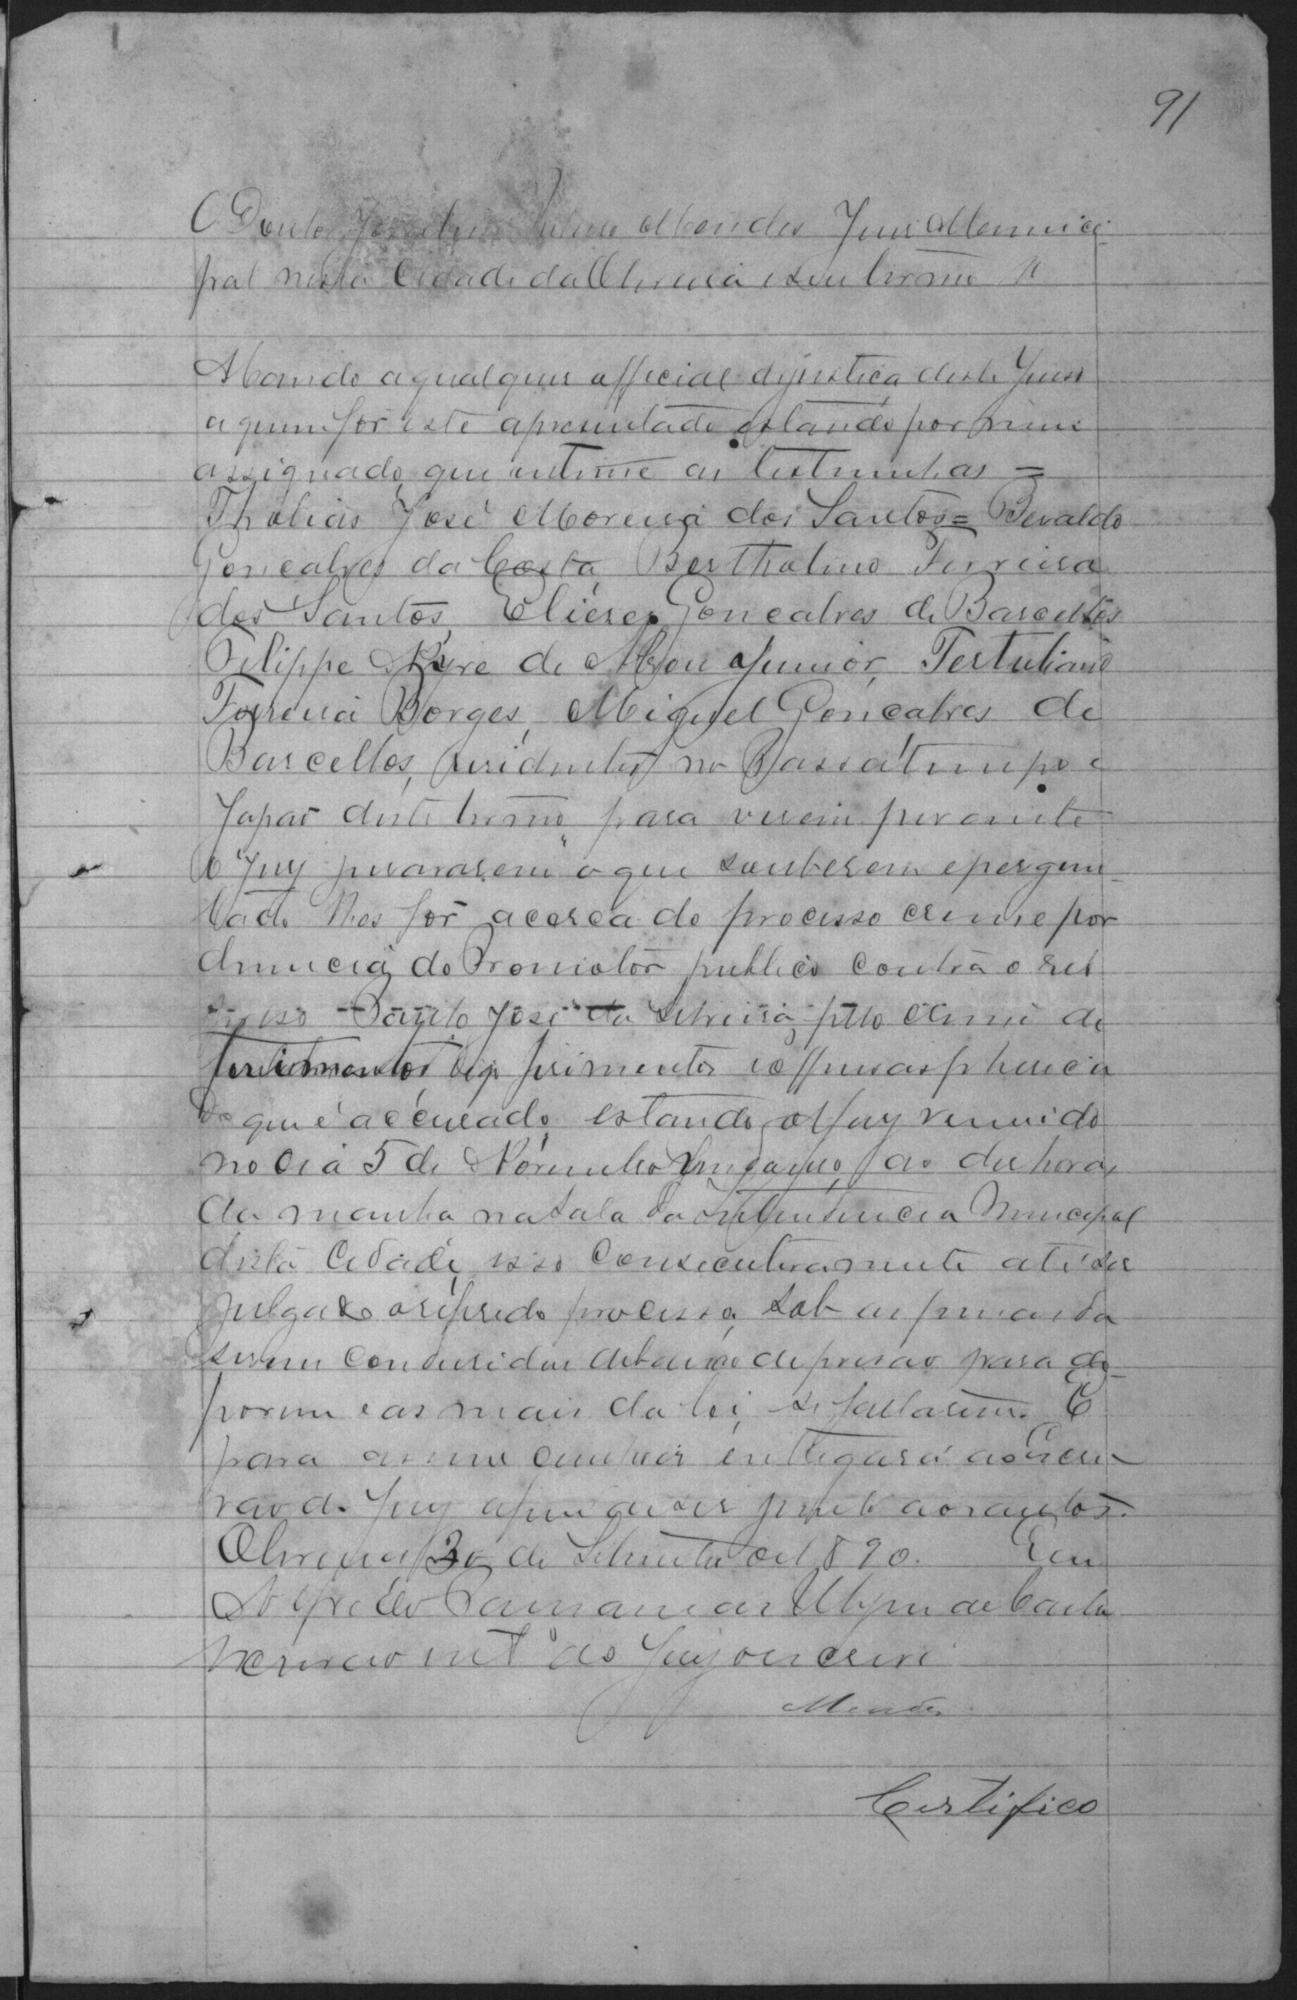 91
O Doutor Mendes Juiz Munici-
pal nesta Cidade da Oliveira e seu termo
Mando a qualquer official de justiça deste Juizo
a quem fôr este apresentado estando por mim
assignado, que intime as testemunhas =
José Moreira dos Santos = Bevaldo
Gonçalves da Costa, Bertholino Ferreira
dos Santos, Elieser Gonçalves de Barcellos
Filippe Nery de Junior, Tertuliano
Ferreira Borges, Miguel Gonçalves de
Barcellos, residentes no Passatempo e
Japão deste termo, para virem perante
o Jury jurarem o que souberem e pergun-
tado lhes fôr acerca do processo crime por
denuncia do Promotor publico contra o réo
preso José da Silveira, pelo crime de
ferimentos, digo ferimentos e offensas phisicas
de que é accusado, estando o Jury reunido
no dia 5 de Novembro as dez horas
da manha na Sala da Intendencia Municipal
desta Cidade, isso consecutivamente até ser
julgado o referido processo, sob as penas de
serem conduzidas debaixo de prisão para de-
porem e as mais da lei, se faltarem. E
para assim cumprir entregará ao Escri-
vão do Jury afim de ser junto aos autos.
Oliveira, 30 de Setembro de 1890. Eu
Alfredo
Escrivão int.º do Jury o escrevi
Mendes
Certifico